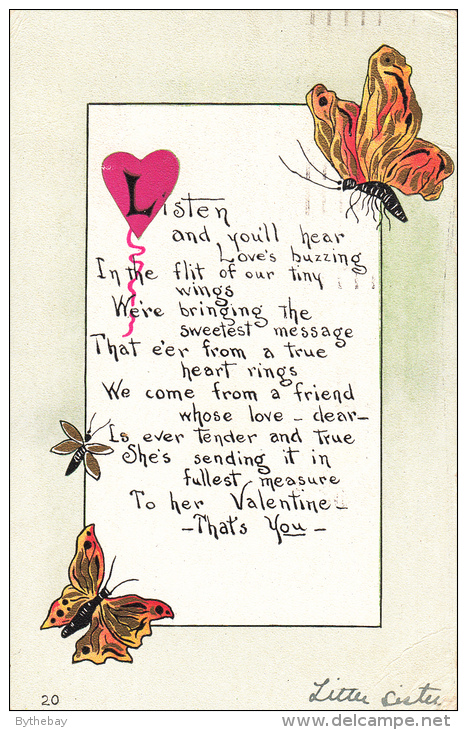 Listen
and you'll hear
Love's buzzing
In the flit of our tiny
wings
We're bringing the
sweetest message
That e'er from a true
heart rings
We come from a friend
whose love - dear -
Is ever tender and true
She's sending it in
fullest measure
To her Valentine -
- That's You -
20
Little Sister
Bythebay
www.delcampe.net